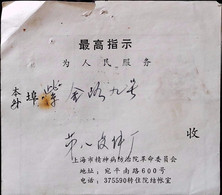 最高指示
为人民服务
本外埠 紫金路九号
收
上海市精神病防治院革命委员会
地址：宛平南路600号
电话：375590转住院结账室